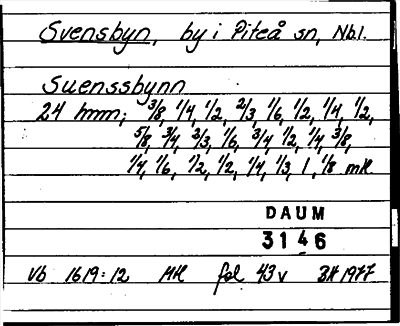 Svensbyn, by i Piteå sn, Nbl.
Suenssbynn
24 hmn; 3/8, 1/4, 1/2, 2/3, 1/6, 1/2, 1/4, 1/2,
5/8, 3/4, 2/3, 1/6, 3/4, 1/2, 1/4, 3/8,
1/4, 1/6, 1/2, 1/2, 1/4, 1/3, 1, 1/8 mtl.
DAUM
3146
Vb 1619:12 Mtl fol 43v BH 1977